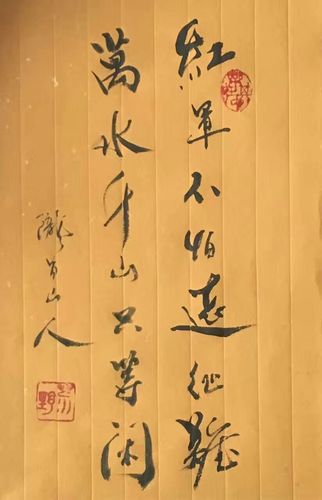 紅軍不怕遠征難
萬水千山只等閑
隴首山人